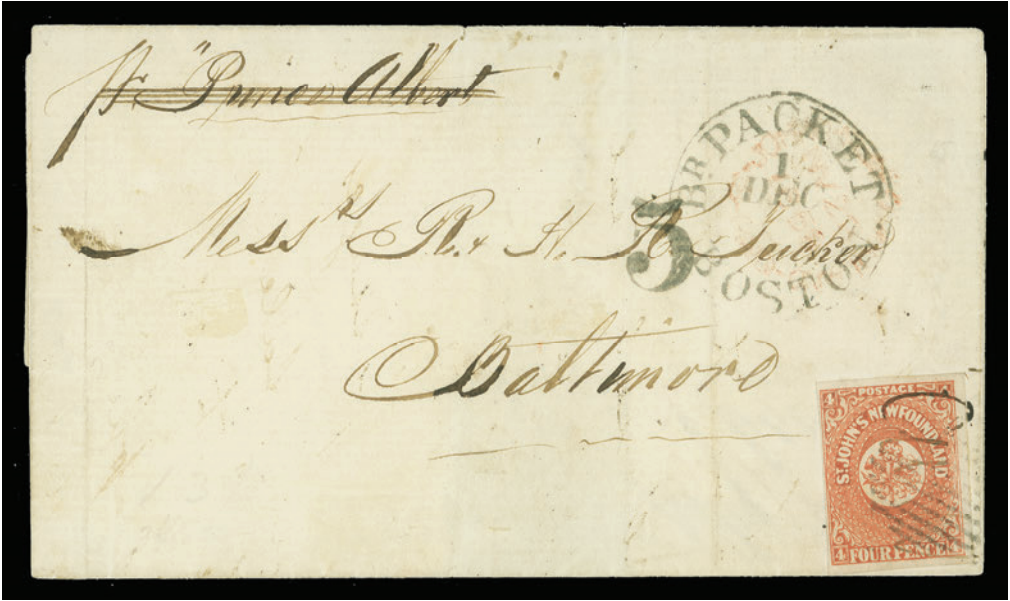 pr "Prince Albert
BR PACKET
1
DEC
BOSTON
5
Messrs R. & H. R. Tucker
Baltimore
POSTAGE
ST JOHN'S NEWFOUNDLAND
FOUR PENCE
4
4
4